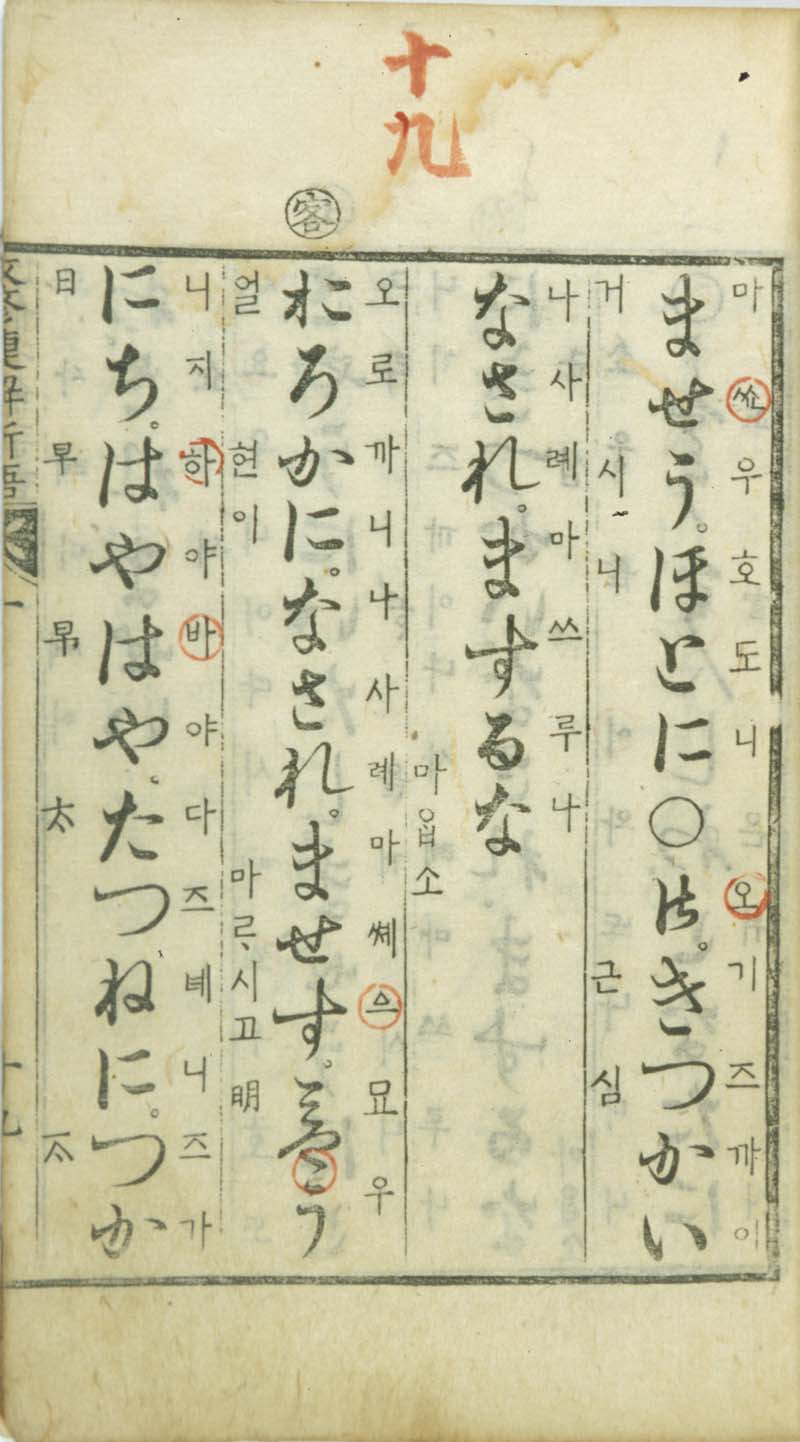 十九
客
마우호도니오기즈까이
ませう。ほとに○御。きつかい
거시니근심
나사례마쓰루나
なされ。まするな
마ᄋᆞᆸ소
오로까니나사례마쎄으묘우
おろかに。なされ。ませす。みやう
얼현이마ᄅᆞ시고明
니지하야바야다즈녜니즈가
にち。はやはや。たつねに。つか
日早早